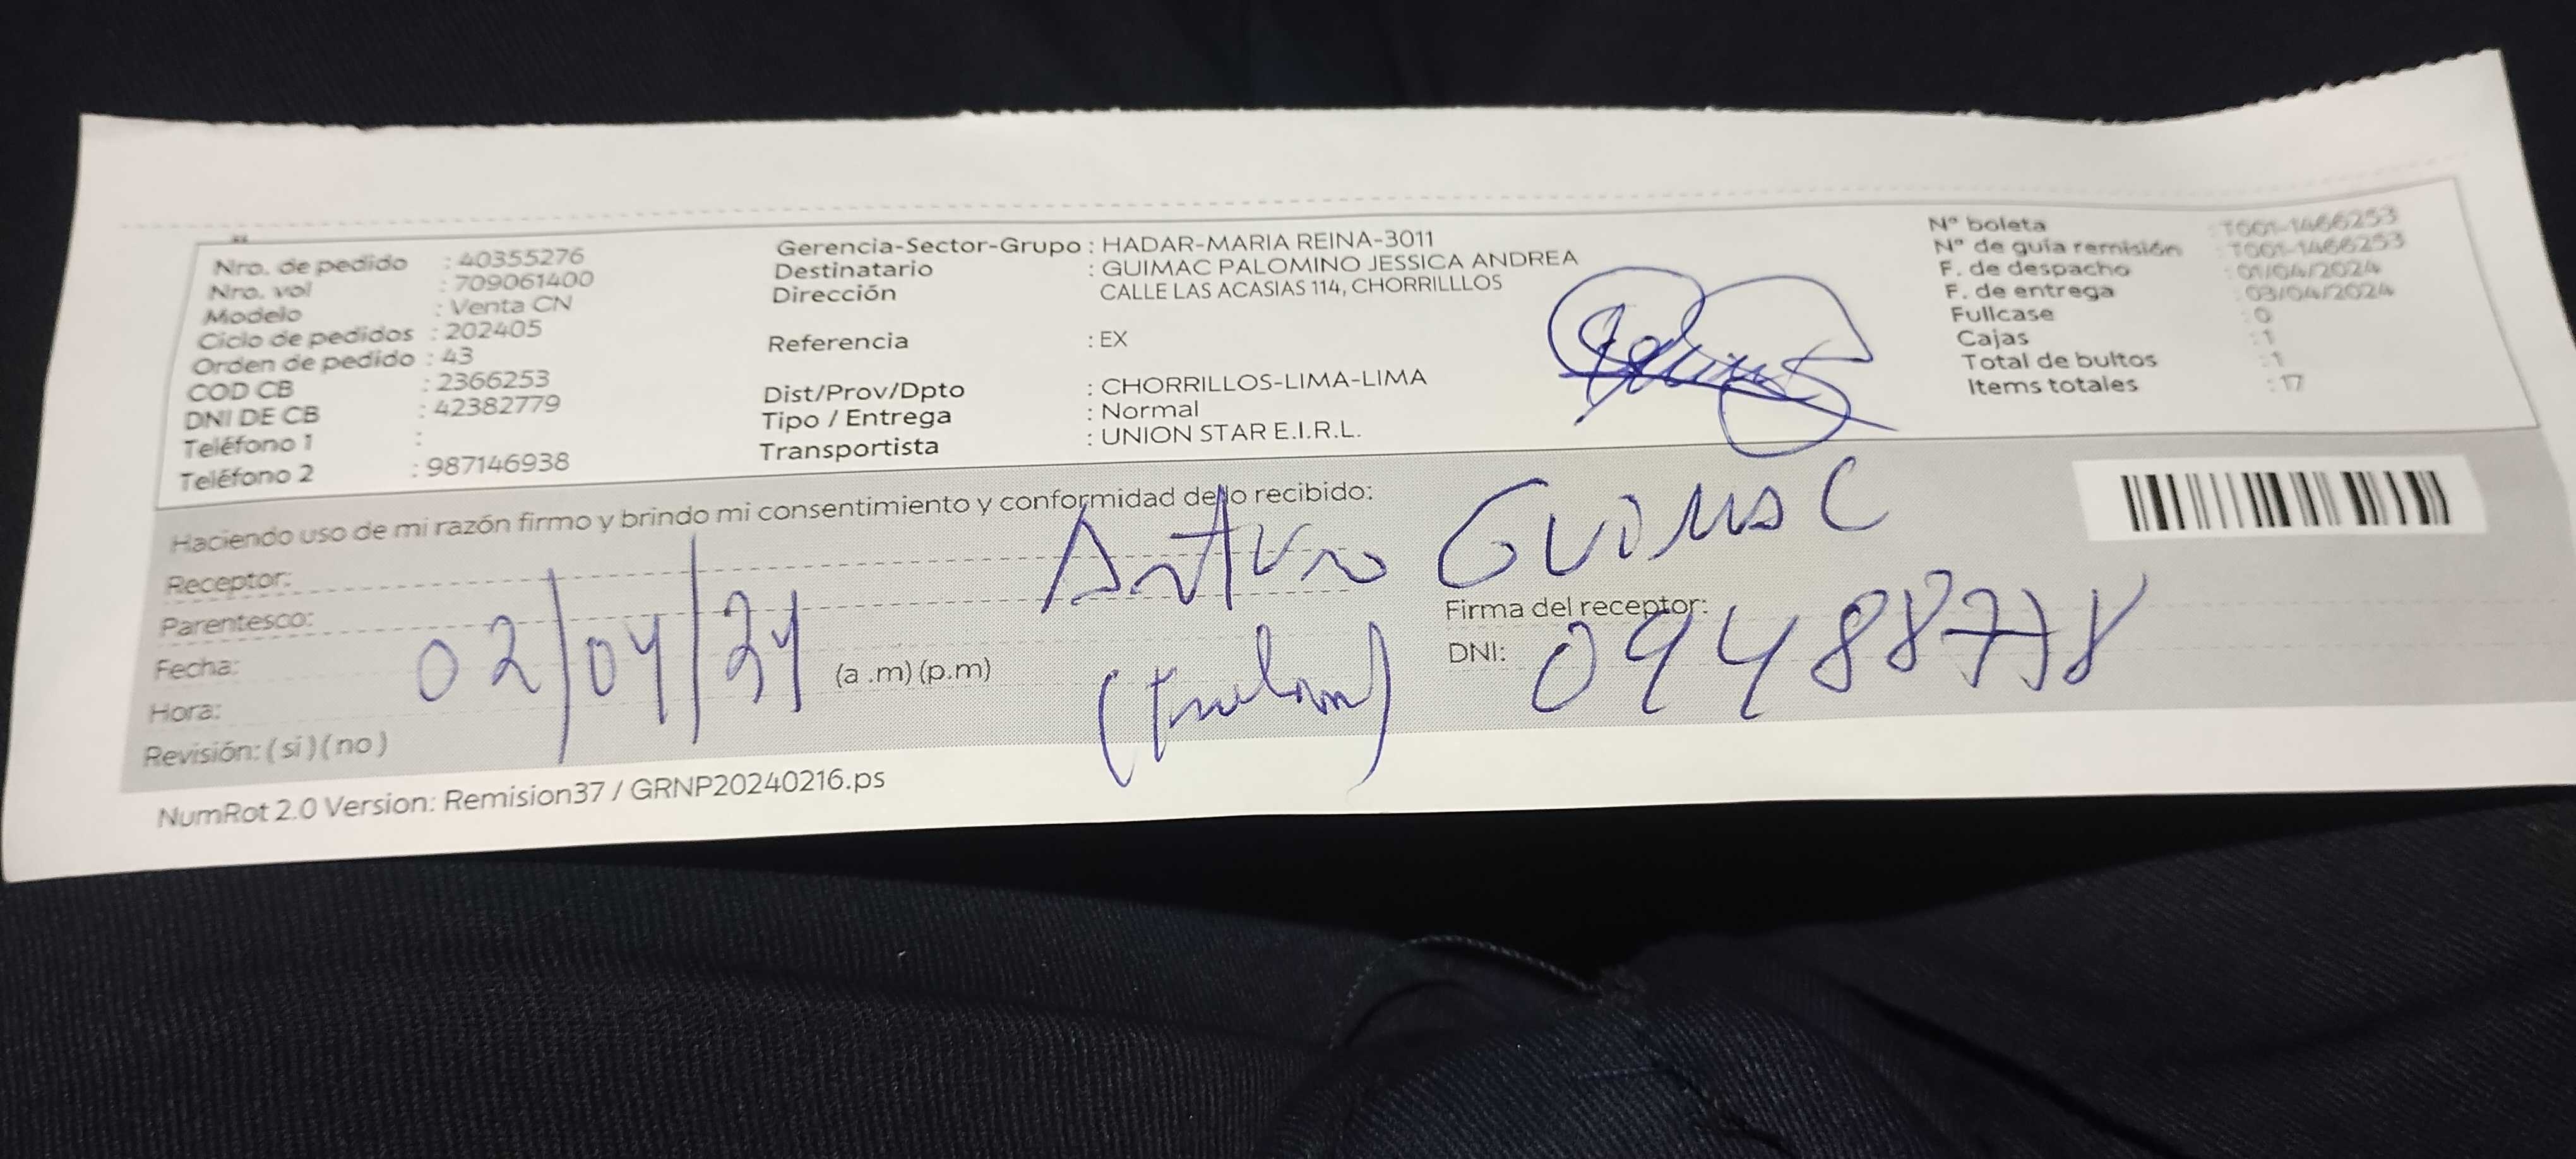 Nro. de pedido : 40355276
Nro. vol : 709061400
Modelo : Venta CN
Ciclo de pedidos : 202405
Orden de pedido : 43
COD CB : 2366253
DNI DE CB : 42382779
Teléfono 1 :
Teléfono 2 : 987146938
Gerencia-Sector-Grupo : HADAR-MARIA REINA-3011
Destinatario : GUIMAC PALOMINO JESSICA ANDREA
Dirección CALLE LAS ACASIAS 114, CHORRILLLOS
Referencia : EX
Dist/Prov/Dpto : CHORRILLOS-LIMA-LIMA
Tipo / Entrega : Normal
Transportista : UNION STAR E.I.R.L.
Nº boleta : T001-1466253
Nº de guía remisión : T001-1466253
F. de despacho : 01/04/2024
F. de entrega : 03/04/2024
Fullcase : 0
Cajas : 1
Total de bultos : 1
Items totales : 17
Haciendo uso de mi razón firmo y brindo mi consentimiento y conformidad de lo recibido:
Receptor: Arturo Guimac
Parentesco:
Fecha: 02/04/24
Hora: (a .m) (p.m)
Revisión: ( si ) ( no )
Firma del receptor:
DNI: 09488778
NumRot 2.0 Version: Remision37 / GRNP20240216.ps